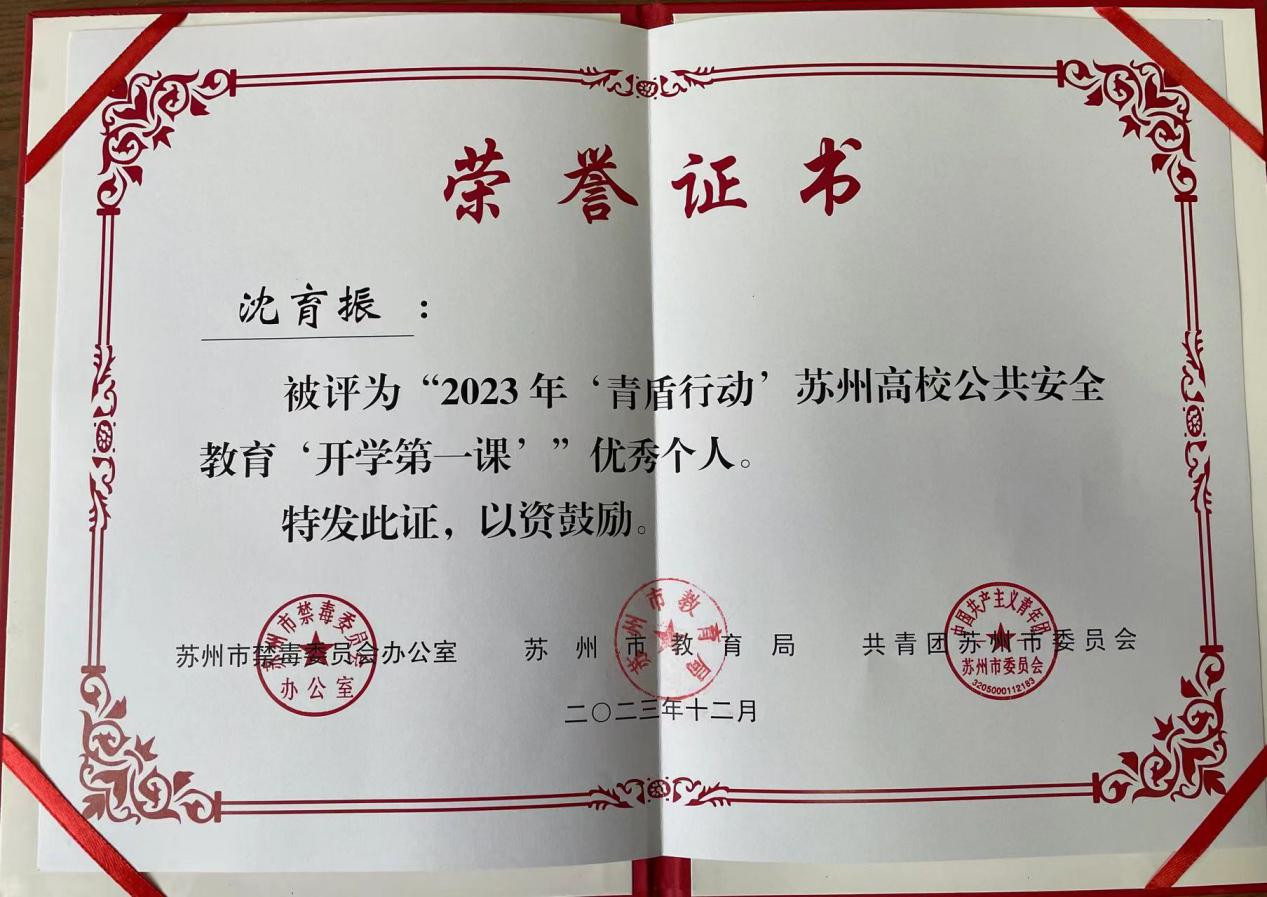 荣誉证书
沈育振：
被评为“2023年‘青盾行动’苏州高校公共安全
教育‘开学第一课’”优秀个人。
特发此证，以资鼓励。
苏州市禁毒委员会办公室 苏州市教育局 共青团苏州市委员会
二〇二三年十二月
苏州市禁毒委员会
办公室
苏州市教育局
中国共产主义青年团
苏州市委员会
3205000112183